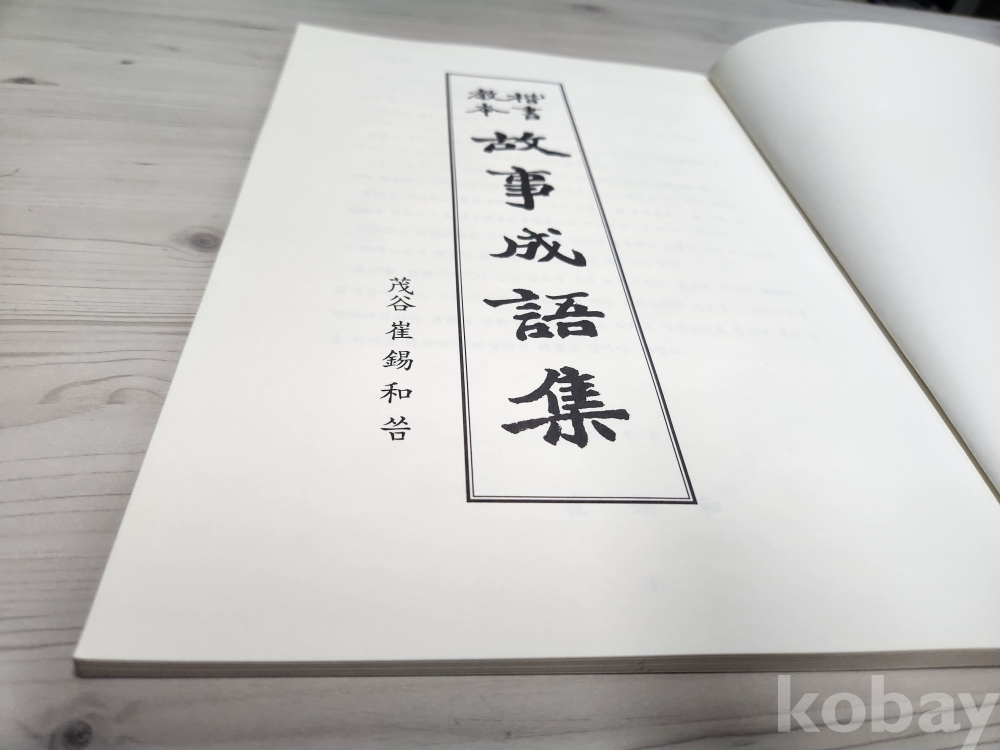 楷書
教本
故事成語集
茂谷 崔錫和 씀
kobay